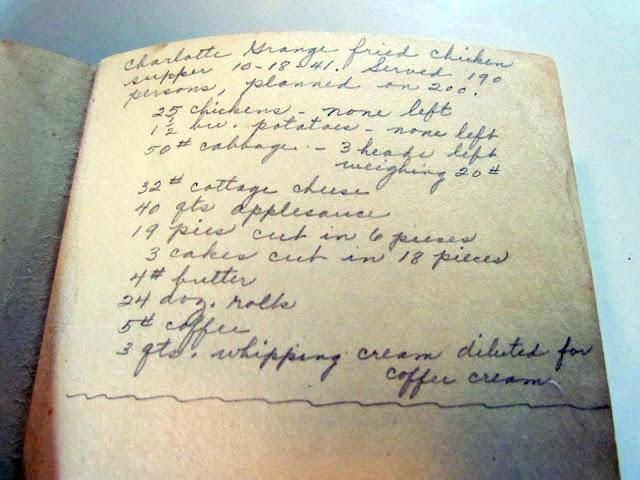 Charlotte Grange fried chicken
supper 10-18-41. Served 190
persons, planned on 200.
25 chickens - none left
1½ bu. potatoes - none left
50# cabbage - 3 heads left
weighing 20#
32# cottage cheese
40 qts applesauce
19 pies cut in 6 pieces
3 cakes cut in 18 pieces
4# butter
24 doz. rolls
5# coffee
3 qts. whipping cream diluted for
coffee cream